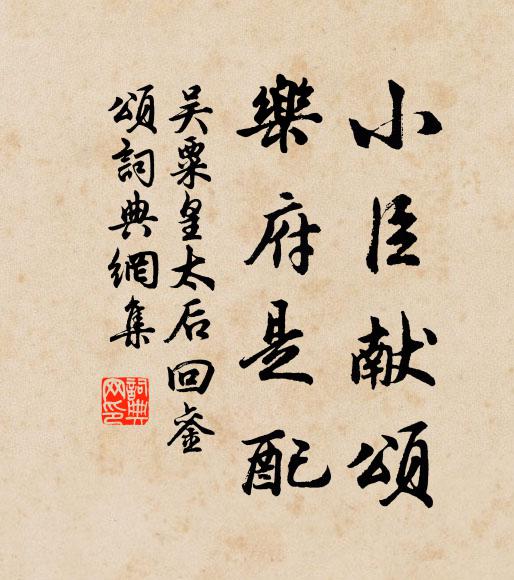 小臣献頌
樂府是配
吴粟皇太后回銮
頌詞典網集
詞典
网印